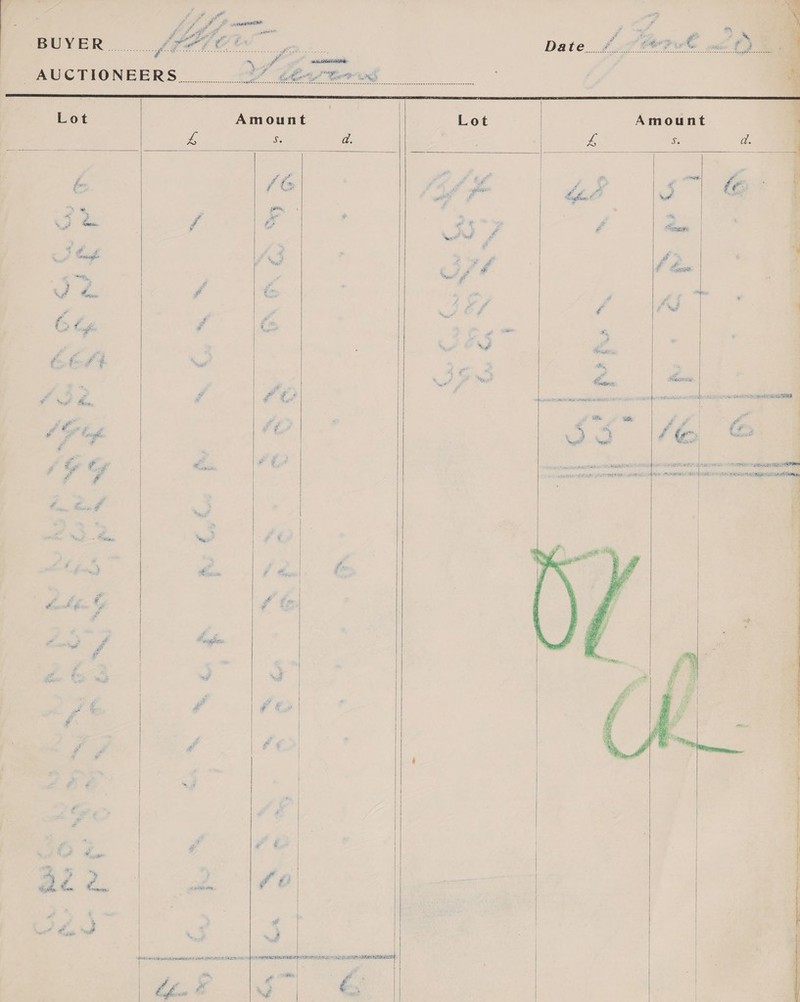 BUYER
Date 1 June 20
AUCTIONEERS Stevens
Lot Amount Lot Amount
£ s. d. £ s. d.
6 16 -
32 1 8 -
34 13 -
52 1 6 -
64 1 6 -
66A 3 - -
132 1 10 -
194 10 -
199 2 10 -
221 3 - -
232 3 10 -
245 2 12 6
249 16 -
257 4 - -
263 5 5 -
276 1 10 -
277 1 10 -
288 5 - -
290 18 -
302 1 10 -
322 2 10
325 3 5
48 5 6
B/F 48 5 6
357 1 2 -
371 12 -
381 1 15 -
385 2 - -
393 2 2 -
55 16 6
OK
CR